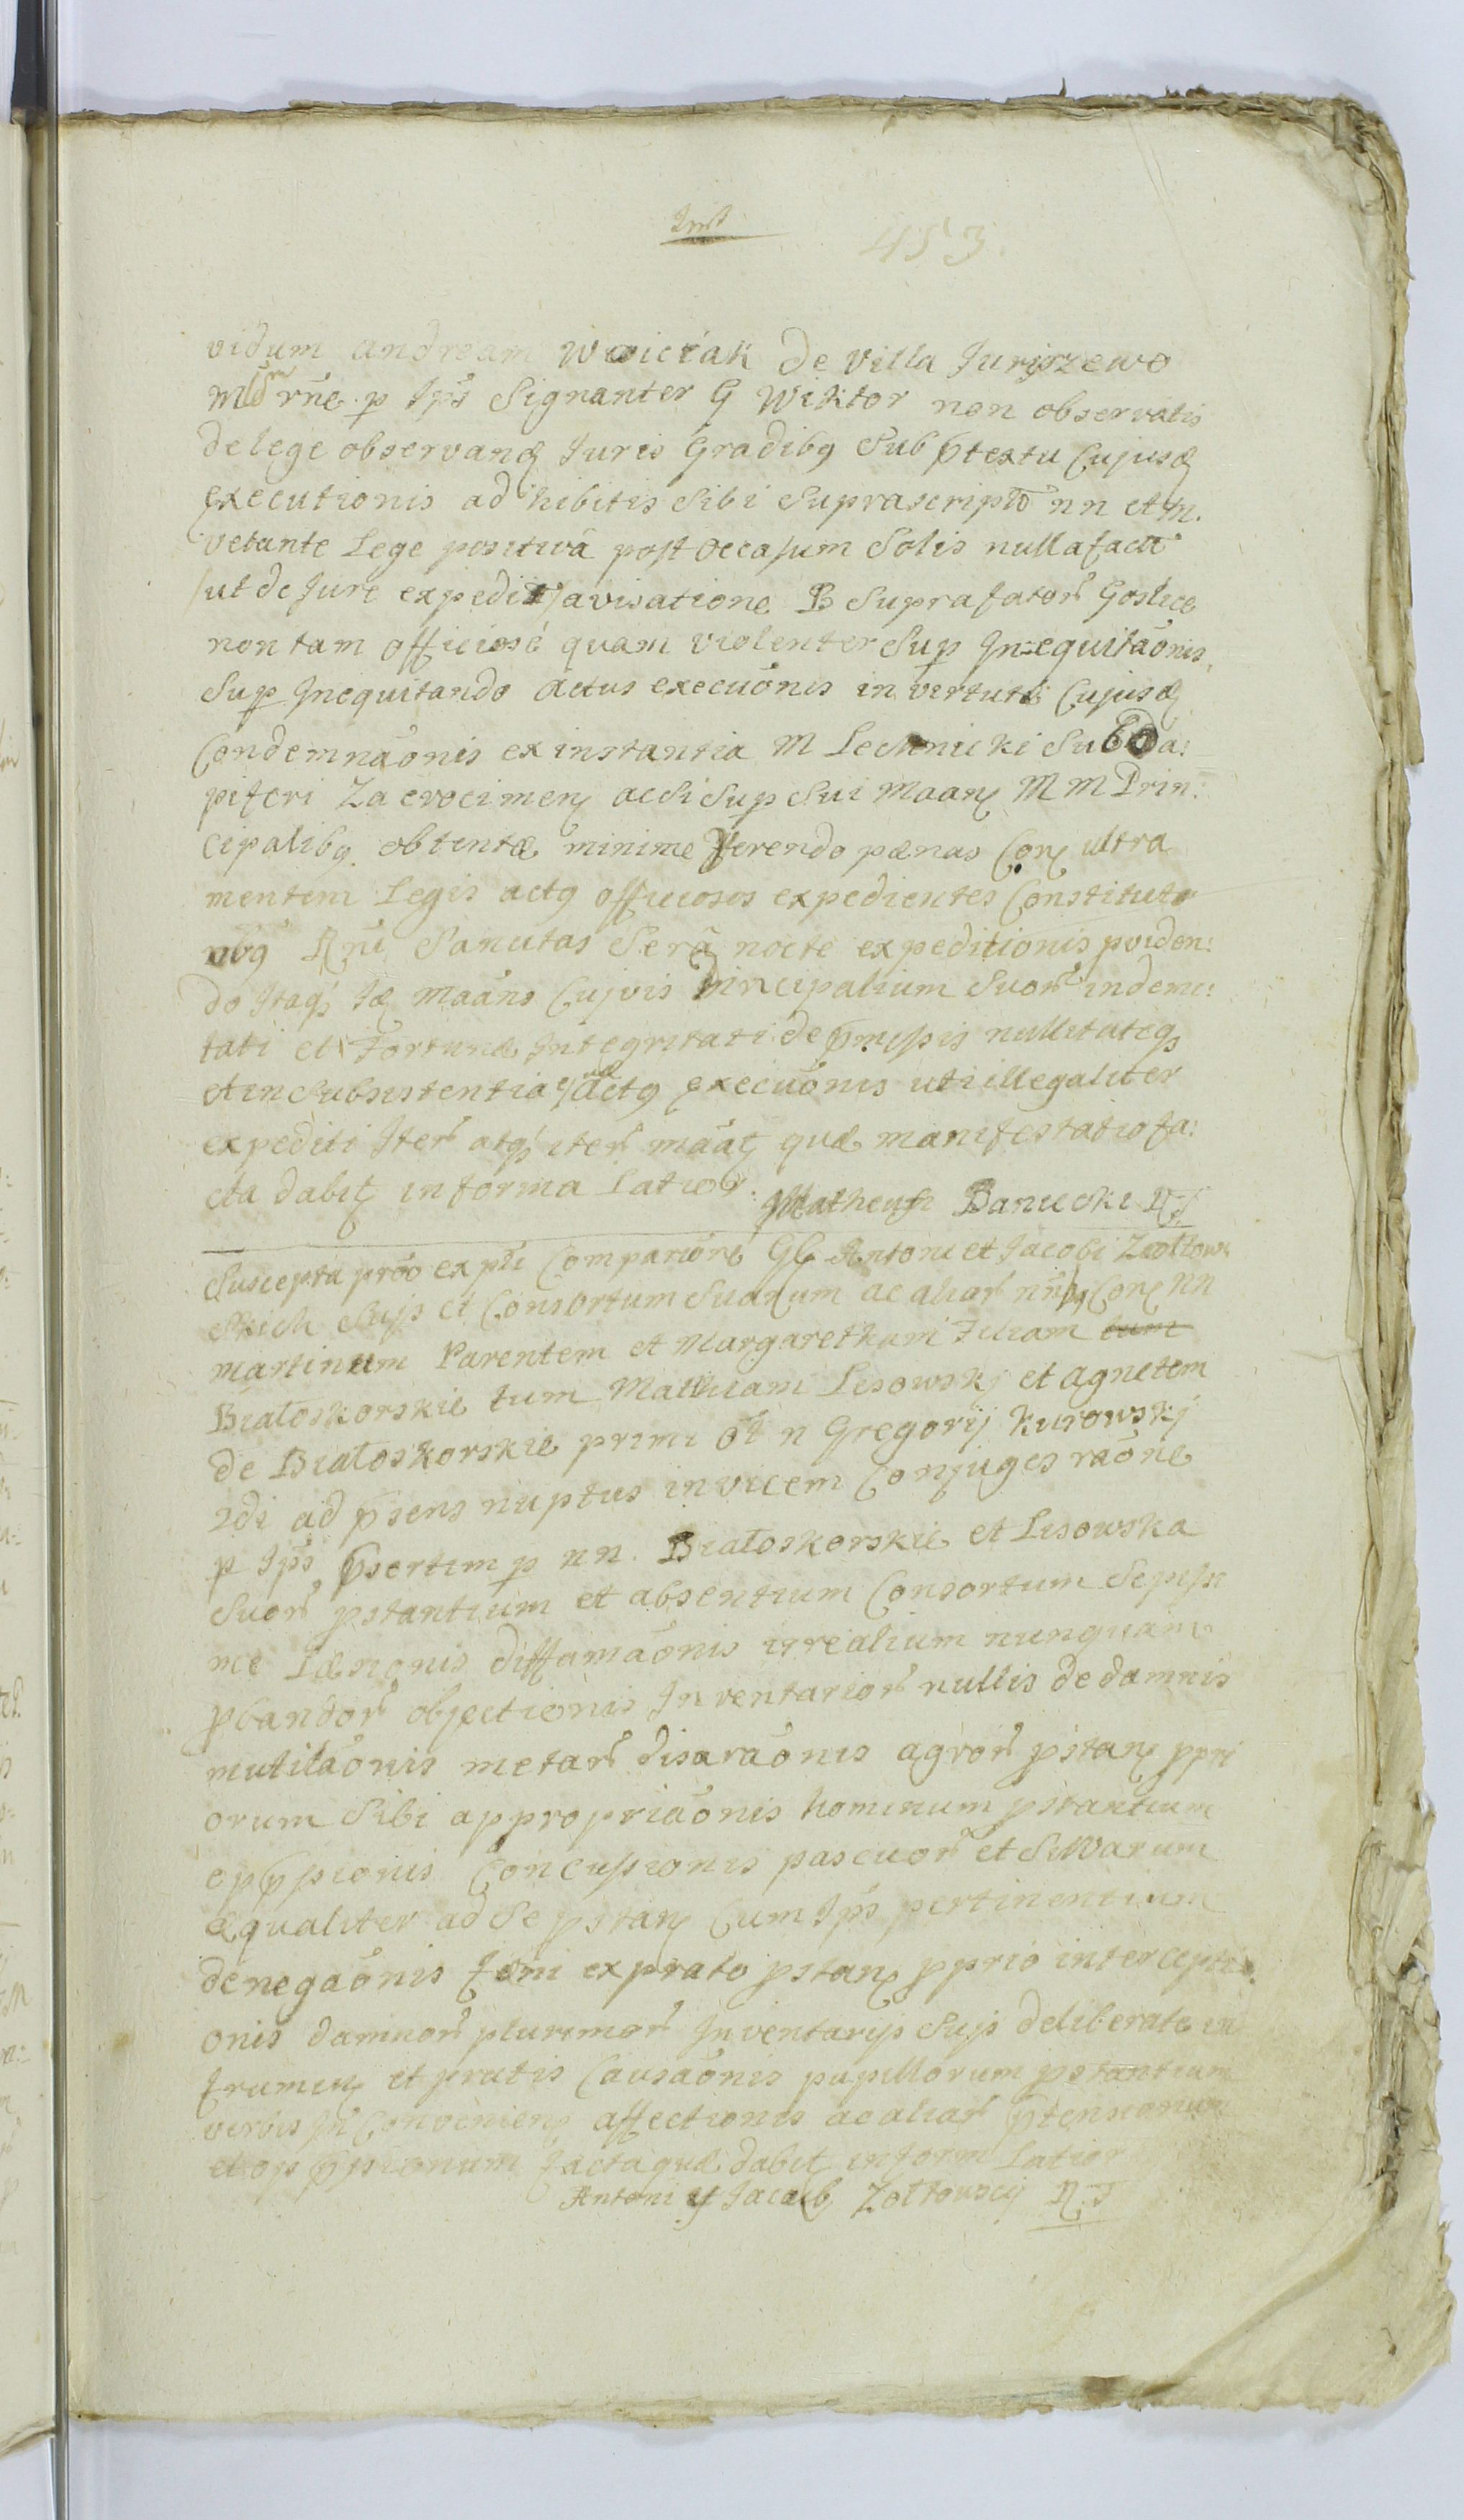 453.
vidum andream Woiciak de villa Juriszewo
rñe. p Ips Signanter G Wiktor non observatis
de lege observanđ Juris Gradibq Sub ptextu Cujusđ
executionis ad hibitis Sibi Suprascripto nn et m.
vetante Lege positivã post occasum Solis nulla facta
ut de Jure expedit avisatione B Suprafator Goslice
non tam officiosé quam violenter Sup In-equitãonis,
Sup Inequitando Actus execuõnis in virtute Cujusđ
Condemnãonis ex instantia M Lechnicki Subda:
piferi Zacrocimen acsi Sup Sui Maan M M Prin:
cipalibq obtentæ minime ferendo pænas Con ultra
mentem Legis actq officiosos expedientes Constituto
Sanutas Serã nocte expeditionis pviden:
do Itaq Maãns Cujvis Principalium Suor indemi:
tati et Fortunæ Integritati de pmissis nullitateq
et insubsistentia Actq execuõnis uti illegaliter
expediti Iter atq iter mãat quæ manifestatio fa:
cta dabit in forma Latior. Matheusz Banucki
Suscepta prõo ex pti Comparione GG Antoni et Jacobi Ziołtow:
skich Suis et Consortum Suarum ac aliar Con nn
martinum Parentem et Margaretham Filiam
Białoskorskie tum Mathiam Lisowskj et Agnetem
de Białoskorskie primi õł n Gregorij Kurowskj
2di ad psens nuptus invicem Conjuges raõne
p Ips psertim p nn. Białoskorskie et Lisowska
Suor pstantium et absentium Consortum Sepiss
me Læsionis diffamãonis irrealium nunquam
pbandor objectionis Inventarior nullis de damnis
mutilãonis metar disaraõnis agror pstan ppri
orum Sibi appropriãonis hominum pstantium
oppssionis Concussionis pascuor et Silvarum
æqualiter ad Se pstan Cum Ips pertinentium
denegaõnis fæni ex prato pstan pprio intercepti
onis damnor plurimor Inventarijs Suis deliberate in
frumen et pratis Causaõnis pupillorum pstantium
verbis In Convenien affectionis ac aliar ptensionum
et oppssionum facta quæ dabit in form Latior
Antoni y Jacub Zołtowscy